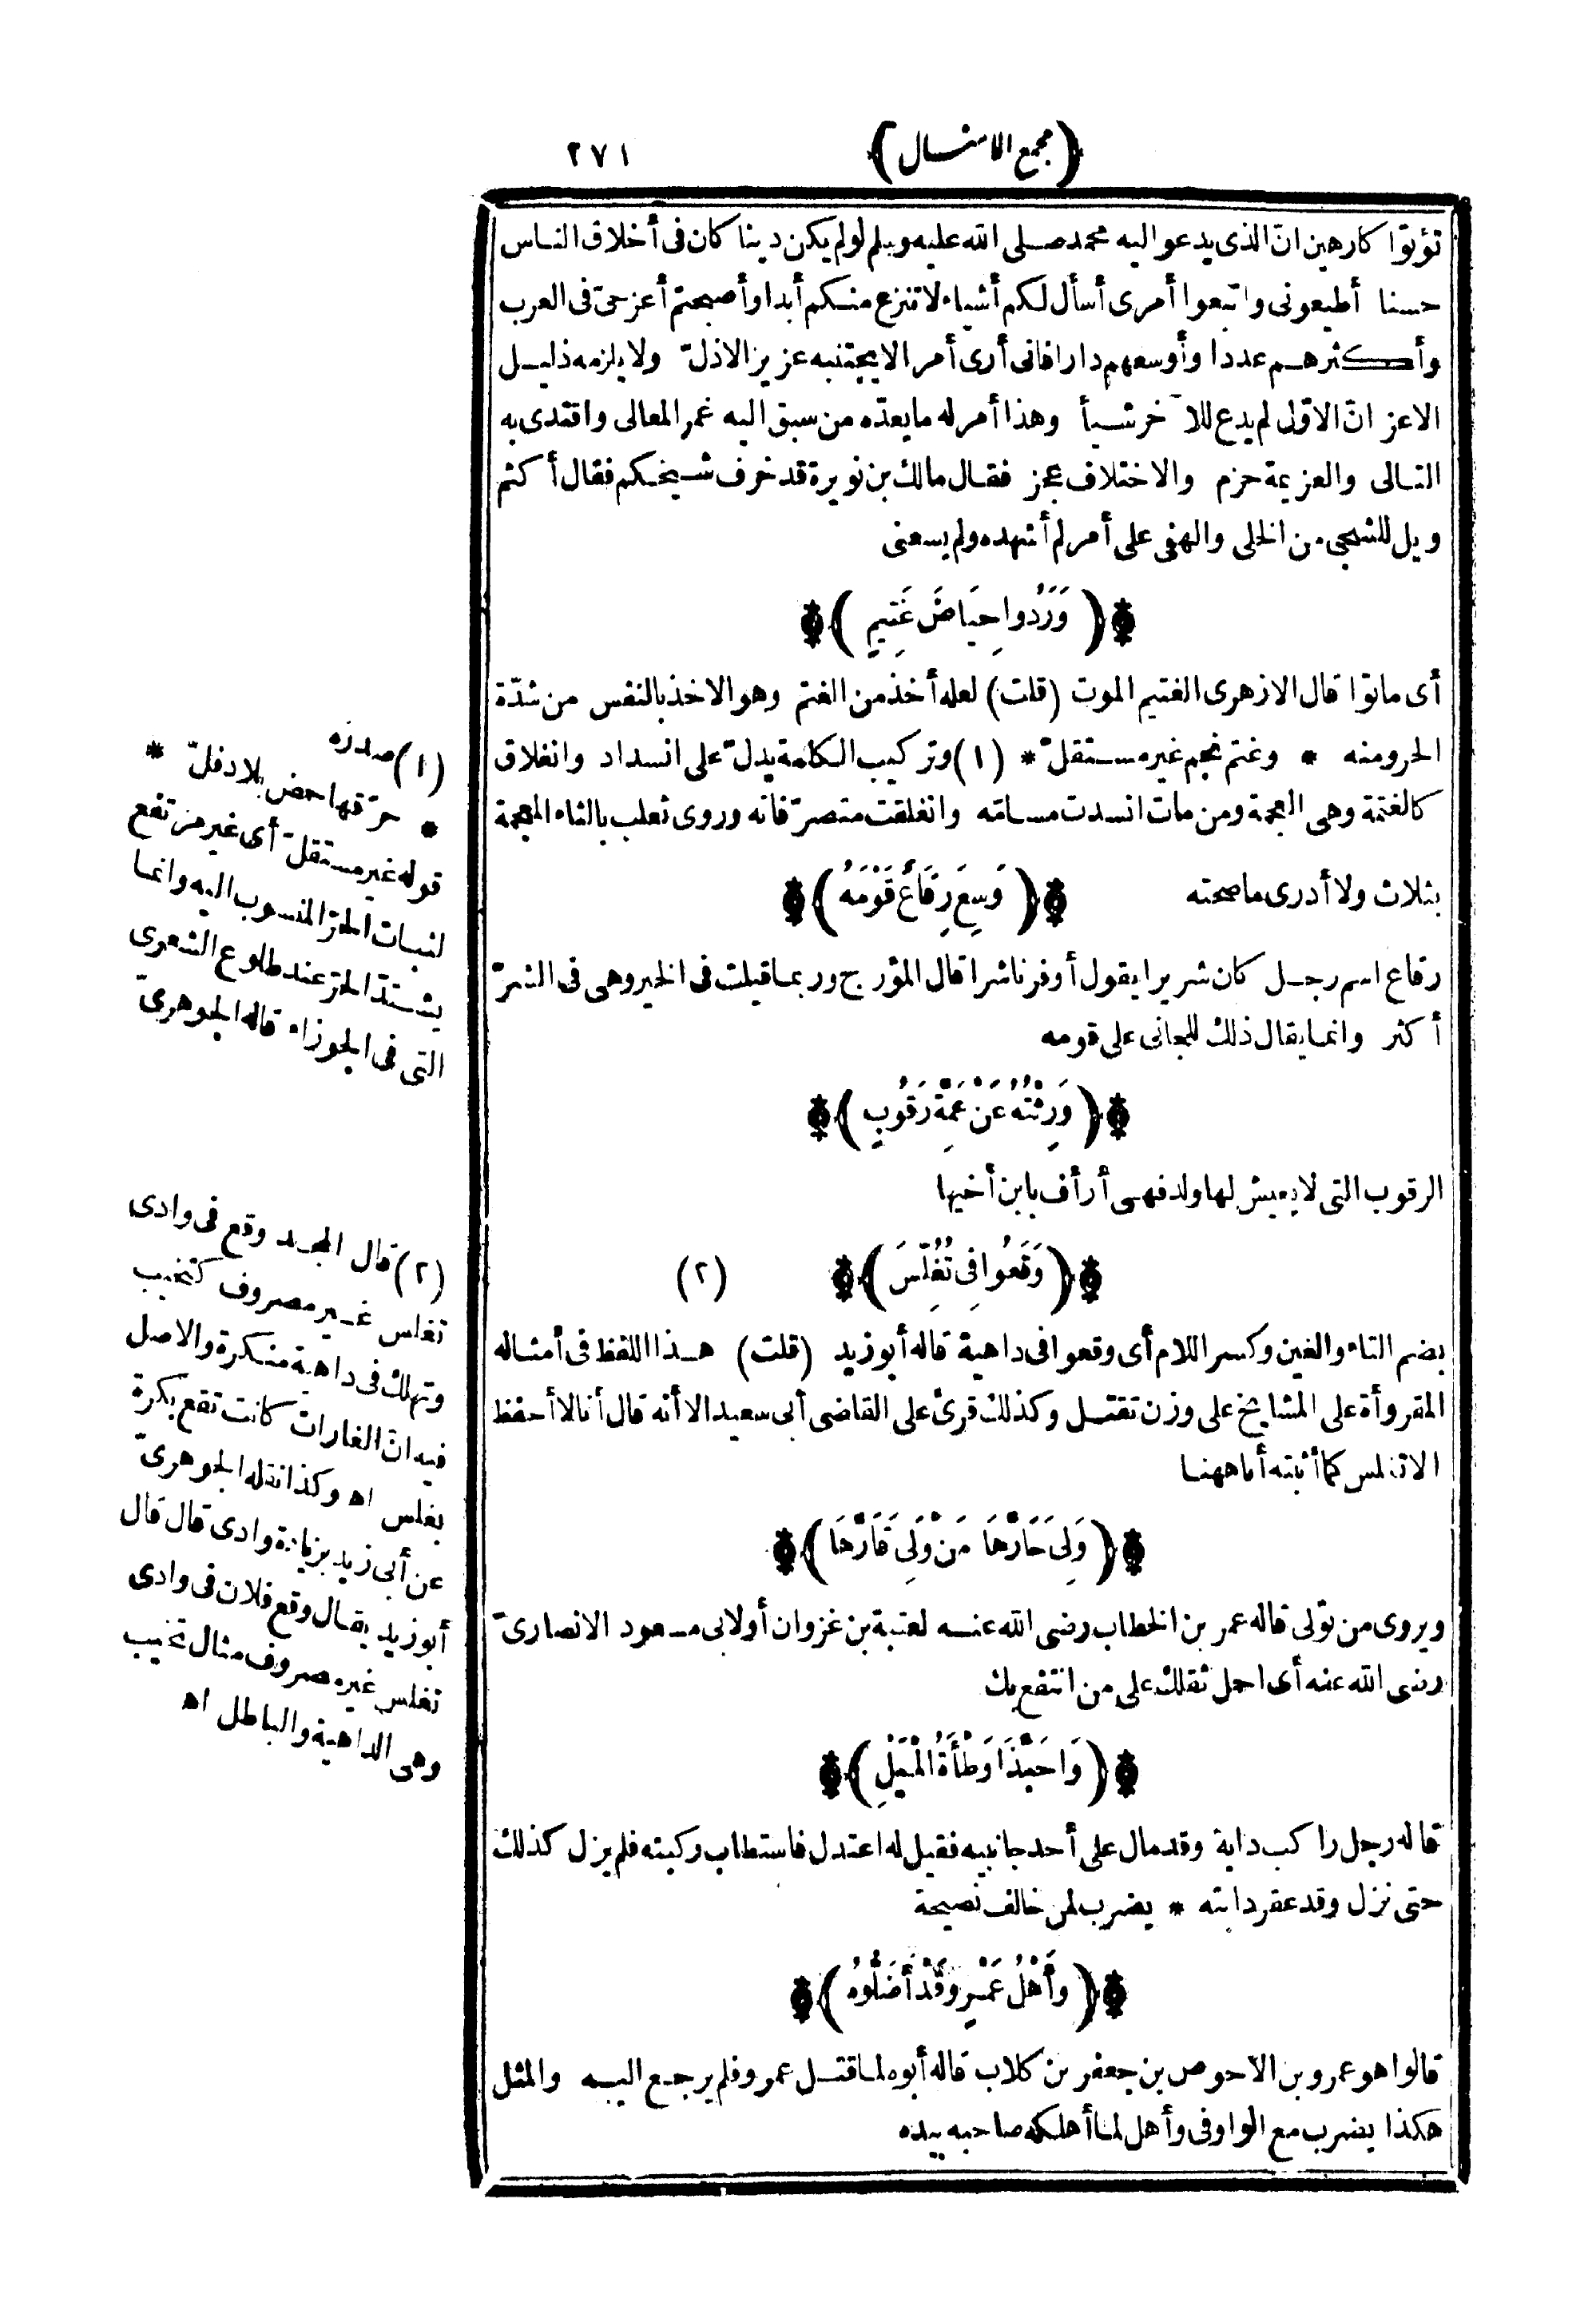 (مجمع الامثال)
٢٧١
تؤتوا كارهين انّ الذى يدعو اليه محمد صلى الله عليه وسلم لو لم يكن دينا كان فى أخلاق الناس
حسنا أطيعونى واتبعوا أمرى أسأل لكم أشياء لا تنزع منكم أبدا وأصبحتم أعز حىّ فى العرب
وأكثرهم عددا وأوسعهم دارا فانى أرى أمر الا يجتنبه عزيز الاذلّ ولا يلزمه ذليل
الاعز انّ الاوّل لم يدع للآخر شيأ وهذا أمر له ما بعدّه من سبق اليه غمر المعالى واقتدى به
التالى والعزيمة حزم والاختلاف عجز فقال مالك بن نويرة قد خرف شيخكم فقال أكثم
ويل للشجى من الخلى والهفى على أمر لم أشهده ولم يسعنى
(وَرَدُوا حِيَاضَ غَتِيمٍ)
أى ماتوا قال الازهرى الغتيم الموت (قلت) لعله أخذ من الغتم وهو الاخذ بالنفس من شدّة
الحر ومنه * وغتم نجم غير مستقلّ * (١) وتركيب الكلمة يدلّ على انسداد وانغلاق
كالغتمة وهى العجمة ومن مات انسدت مسامّه وانغلقت متصرّفاته وروى ثعلب بالثاء المعجمة
بثلاث ولا أدرى ما صحته
(وَسِعَ رِقَاعُ قَوْمَهُ)
رقاع اسم رجل كان شريرا يقول أوفرنا شرا قال المؤرج وربما قيلت فى الخير وهى فى الشرّ
أكثر وانما يقال ذلك للجانى على قومه
(وَرِثْتُهُ عَنْ عَمَّةٍ رَقُوبٍ)
الرقوب التى لا يعيش لها ولد فهى أرأف بابن أخيها
(وَقَعُوا فِى تُغُلِّسَ) (٢)
بضم التاء والغين وكسر اللام أى وقعوا فى داهية قاله أبو زيد (قلت) هذا اللفظ فى أمثاله
المقروأة على المشايخ على وزن تقتل وكذلك قرئ على القاضى أبى سعيد الا أنه قال أنا لا أحفظ
الا تغلس كما أثبته أنا ههنا
(وَلِىَ حَارَّهَا مَنْ وَلِىَ قَارَّهَا)
ويروى من تولى قاله عمر بن الخطاب رضى الله عنه لعتبة بن غزوان أو لابى مسعود الانصارىّ
رضى الله عنه أى احمل ثقلك على من انتفع بك
(وَاحَبَّذَا وَطْأَةُ الْمَيَلِ)
قاله رجل راكب دابة وقد مال على أحد جانبيه فقيل له اعتدل فاستطاب ركبته فلم يزل كذلك
حتى نزل وقد عقر دابته * يضرب لمن خالف نصيحة
(وأَهْلُ عَمْرٍو قَدْ أَضَلُّوهُ)
قالوا هو عمرو بن الاحوص بن جعفر بن كلاب قاله أبوه لما قتل عمرو فلم يرجع اليه والمثل
هكذا يضرب مع الواو فى وأهل لما أهلكه صاحبه بيده
(١) صدره
* حرّقها حمض بلاد فلّ *
قوله غير مستقلّ أى غير مرتفع
لثبات الحرّ المنسوب اليه وانما
يشتدّ الحرّ عند طلوع الشعرى
التى فى الجوزاء قاله الجوهرىّ
(٢) قال المجد وقع فى وادى
تغلس غير مصروف كتخيب
وتهلك فى داهية منكرة والاصل
فيه انّ الغارات كانت تقع بكرة
بغلس اه وكذا نقله الجوهرىّ
عن أبى زيد بزيادة وادى قال قال
أبو زيد يقال وقع فلان فى وادى
تغلس غير مصروف مثال تخيب
وهى الداهية والباطل اه